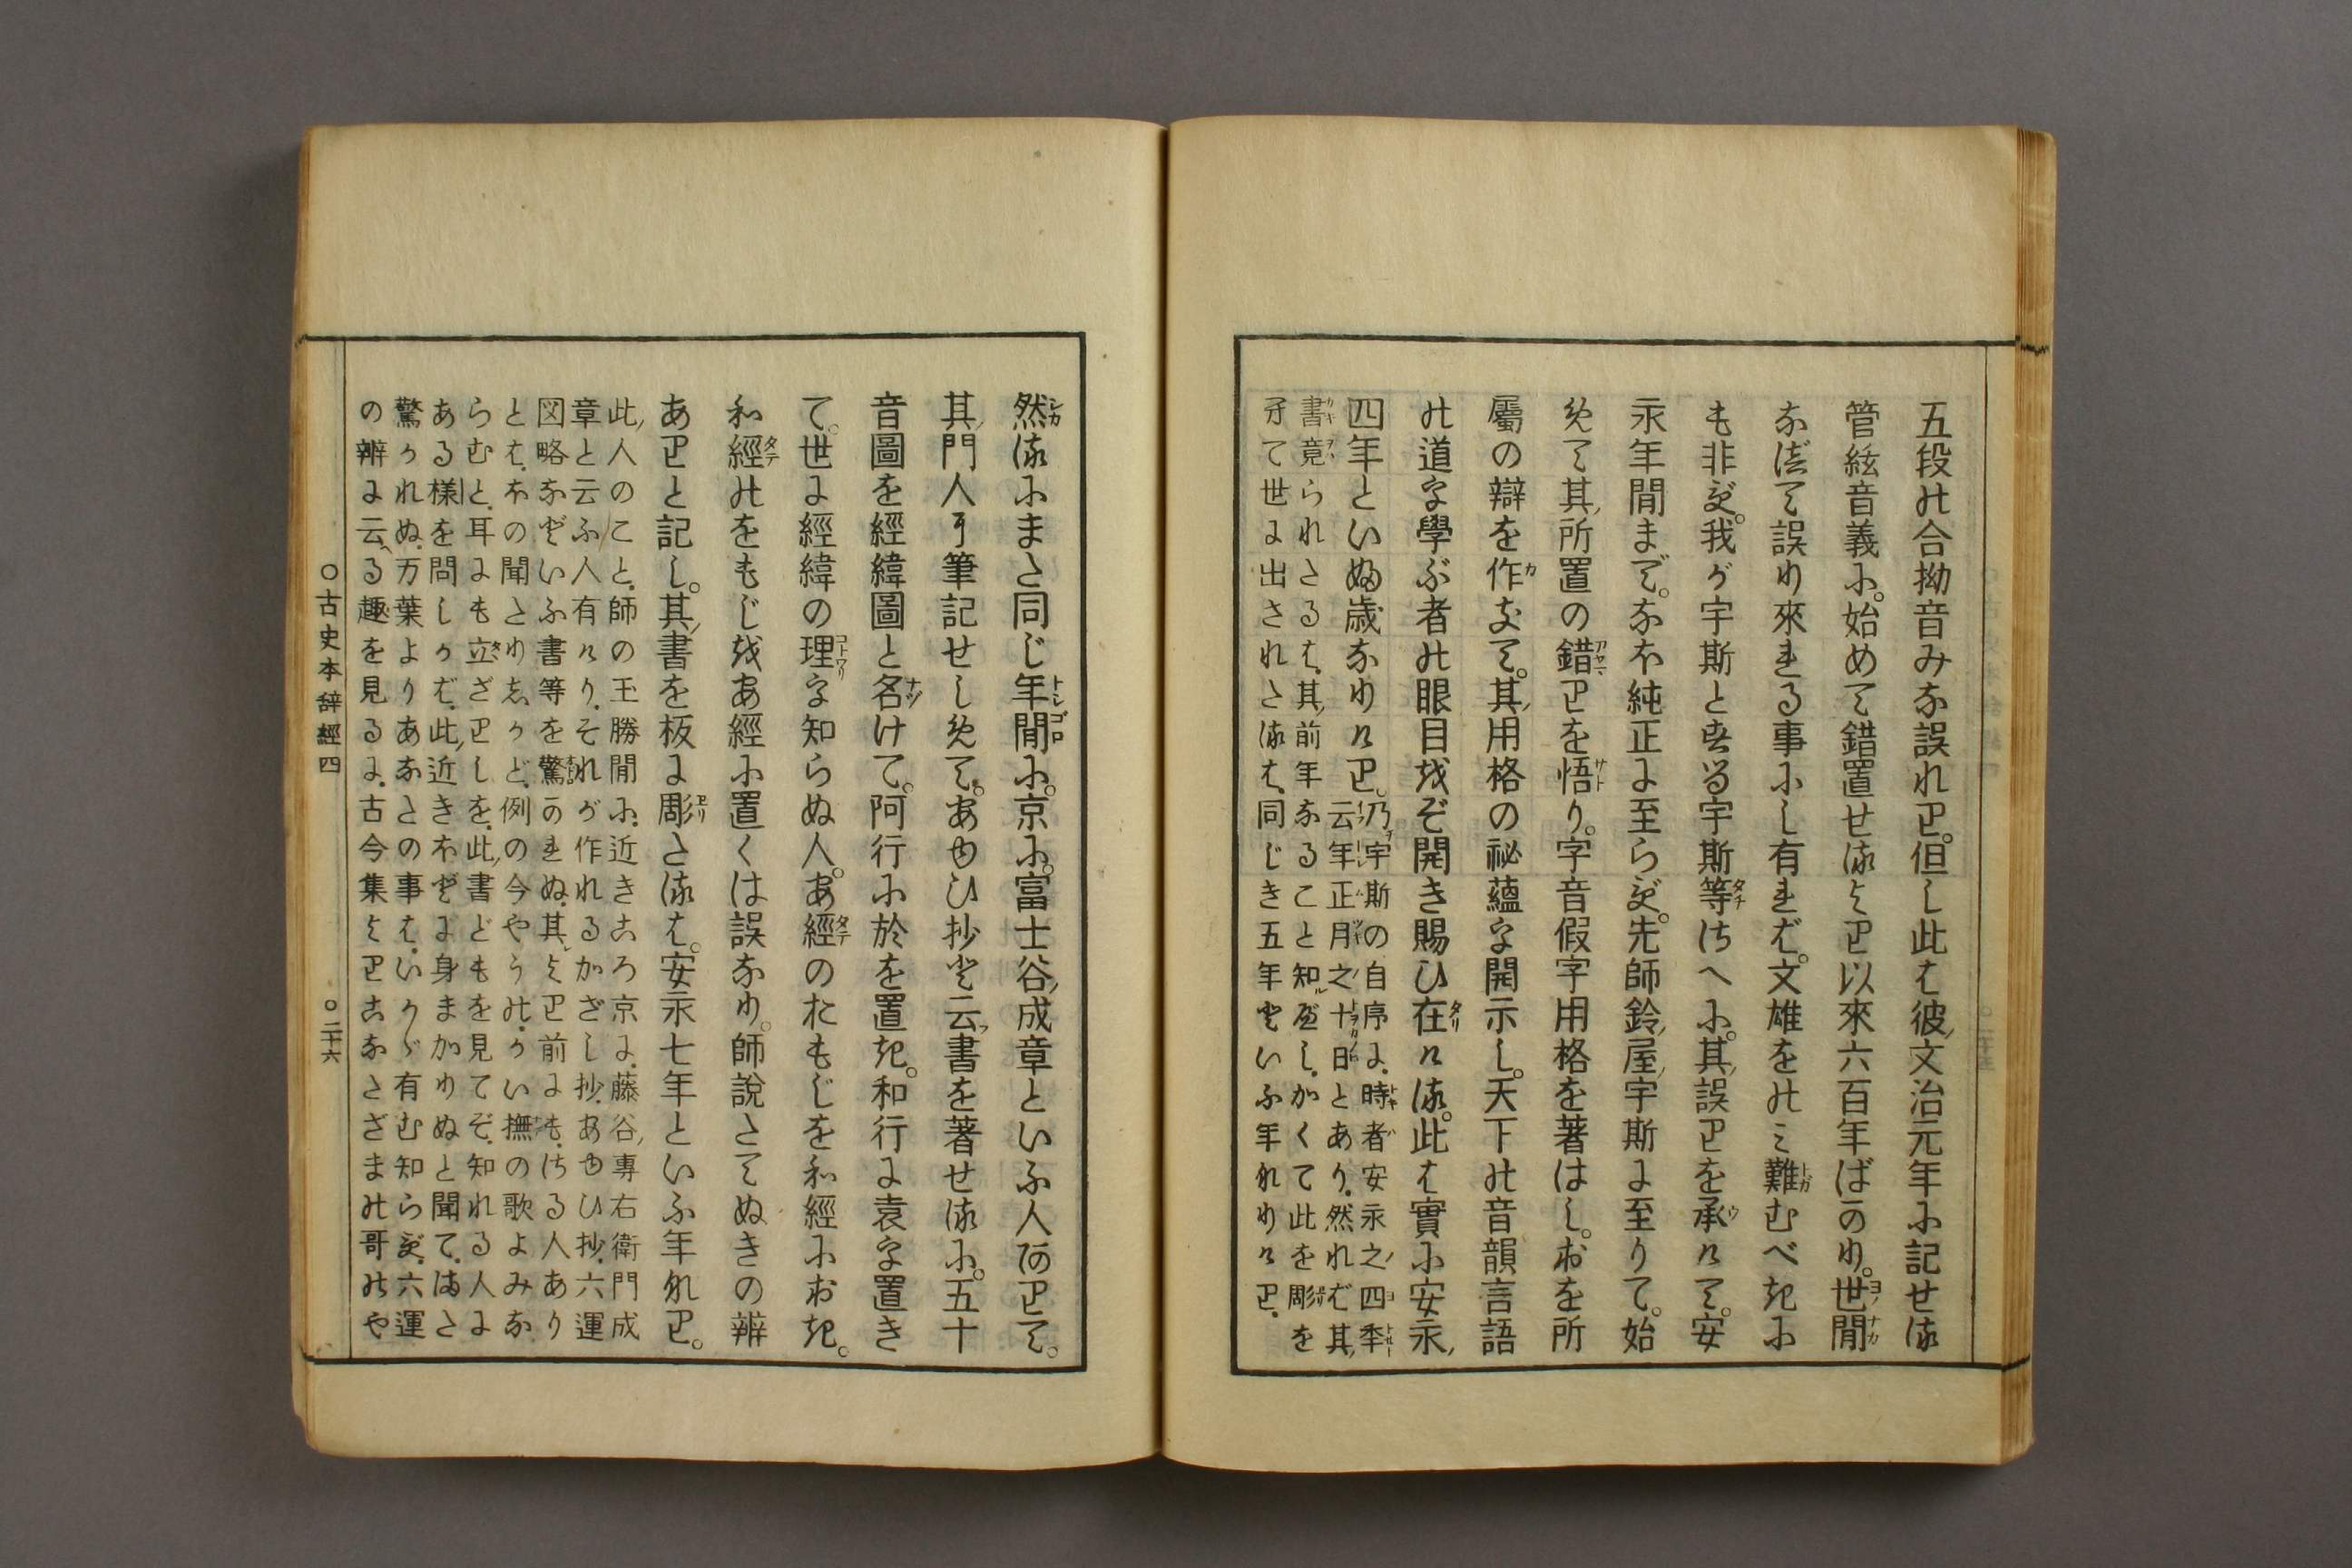 五段の合拗音みな誤れり。但し此は彼文治元年に記せる
管絃音義に。始めて錯置せるより以來六百年ばかり。世間
なべて誤り來れる事にし有れば。文雄をのみ難むべきに
も非ず。我が宇斯と坐る宇斯等さへに。其誤りを承けて。安
永年間まで。なほ純正に至らず。先師鈴屋宇斯に至りて。始
めて其所置の錯りを悟り。字音假字用格を著はし。おを所
屬の辯を作なして。其用格の祕蘊を開示し。天下の音韻言語
の道を學ぶ者の眼目をぞ開き賜ひ在ける。此は實に安永
四年といふ歳なりけり。
乃宇斯の自序に。時者安永之四季
云年正月之十日とあり。然れば其
書竟られたるは。其前年なること知べし。かくて此を彫を
まて世に出されたるは。同じき五年といふ年なりけり。
然るにまた同じ年間に。京に。富士谷成章といふ人ありて。
其門人に筆記せしめて。あゆひ抄と云書を著せるに。五十
音圖を經緯圖と名けて。阿行に於を置き。和行に袁を置き
て。世に經緯の理を知らぬ人。あ經のおもじを和經におき。
和經のをもじをあ經に置くは誤なり。師說たてぬきの辨
ありと記し。其書を板に彫たるは。安永七年といふ年なり。
此人のこと。師の玉勝間に。近きころ京に。藤谷專右衛門成
章と云ふ人有けり。それが作れるかざし抄。あゆひ抄。六運
図略などいふ書等を驚かれぬ。其より前にも。さる人あり
とは。ほの聞たりしかど。例の今やうの。かい撫の歌よみな
らむと。耳にも立ざりしを。此書どもを見てぞ。知れる人に
ある様を問しかば。此近きほどに身まかりぬと聞て。また
驚かれぬ。万葉よりあなたの事は。いかゞ有む知らず。六運
の辨に云る趣を見るに。古今集よりこなたざまの哥のや
○古史本辞經四
○二十六